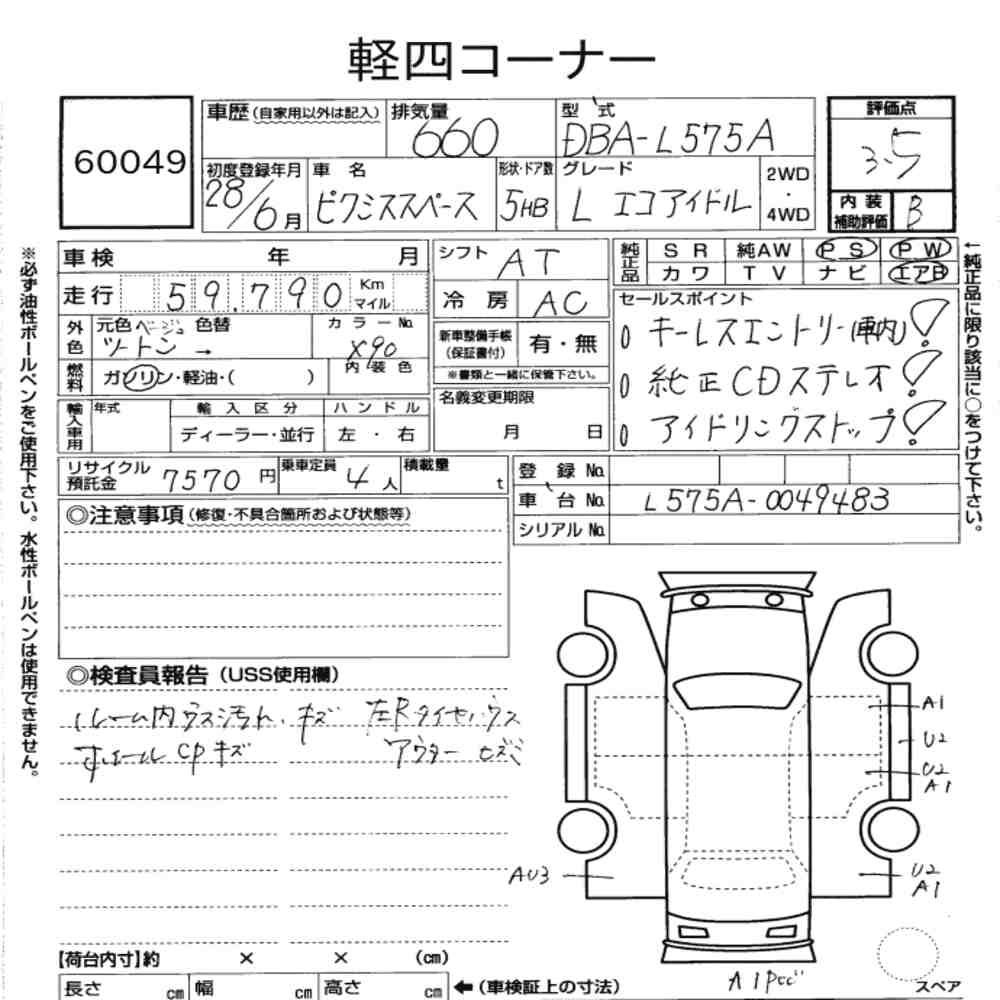 軽四コーナー
60049
車歴(自家用以外は記入) 排気量 660 型式 DBA-L575A
評価点 3.5
初度登録年月 28/6月 車名 ピクシススペース 形状・ドア数 5HB グレード L エコアイドル 2WD・4WD
内装補助評価 B
車検 年 月
走行 59,790 Km マイル
外色 元色 ベージュ ツートン 色替 → カラーNo. X90
燃料 ガソリン・軽油・( ) 内装色
輸入車用 年式 輸入区分 ディーラー・並行 ハンドル 左・右
シフト AT
冷房 AC
新車整備手帳(保証書付) 有・無
※書類と一緒に保管下さい。
名義変更期限 月 日
純正品 SR 純AW PS PW
カワ TV ナビ エアB
セールスポイント
キーレスエントリー(車内)!
純正CDステレオ!
アイドリングストップ!
リサイクル預託金 7570円 乗車定員 4人 積載量 t
登録No.
車台No. L575A-0049483
シリアルNo.
◎注意事項(修復・不具合箇所および状態等)
◎検査員報告(USS使用欄)
ルーム内ウス汚れ、キズ 左Rタイヤハウス
ホイールCPキズ アウター ヒズミ
A1
U2
U2
A1
AU3
U2
A1
A1P
スペア
【荷台内寸】約 × × (cm)
長さ cm 幅 cm 高さ cm ←(車検証上の寸法)
※必ず油性ボールペンをご使用下さい。水性ボールペンは使用できません。
←純正品に限り該当に○をつけて下さい。